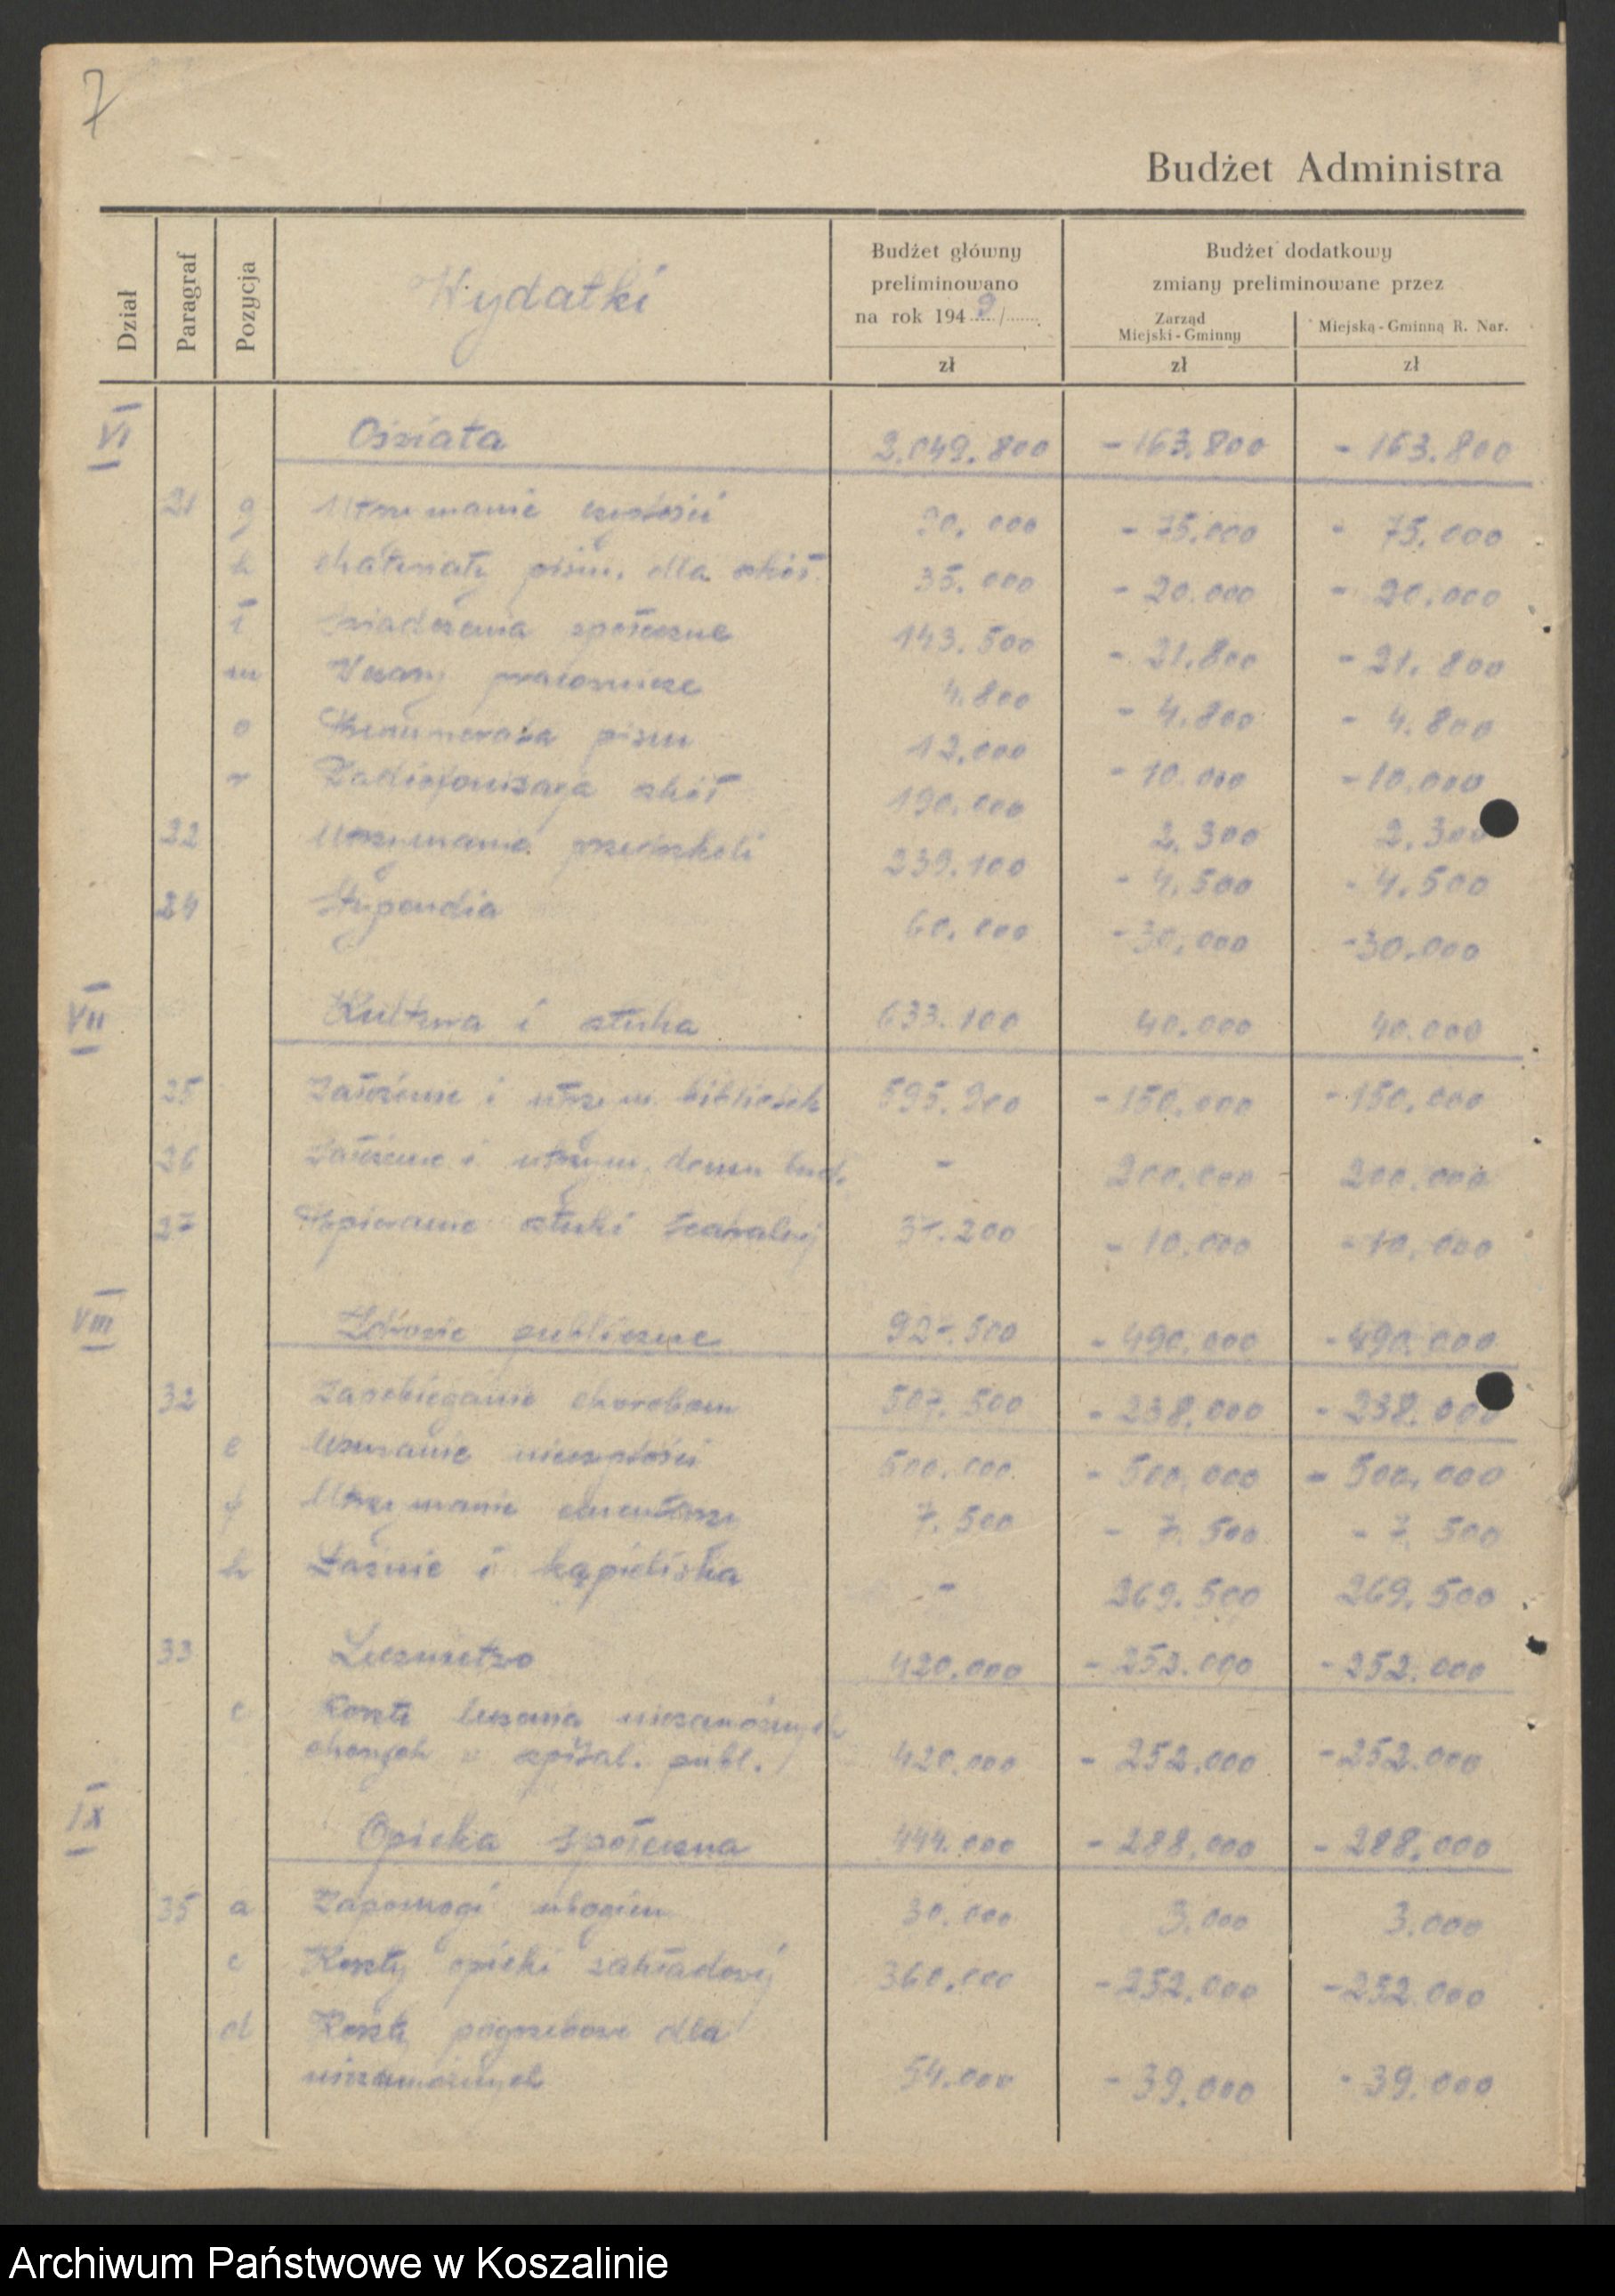 7
Budżet Administra
Dział Paragraf Pozycja Wydatki Budżet główny preliminowano na rok 1949/ zł Budżet dodatkowy zmiany preliminowane przez Zarząd Miejski-Gminny zł Miejską-Gminną R. Nar. zł
VI Oświata 2.049.800 - 163.800 - 163.800
21 g Utrzymanie czystości 90.000 - 75.000 - 75.000
h Materiały piśm. dla szkół 35.000 - 20.000 - 20.000
ł Świadczenia społeczne 143.500 - 21.800 - 21.800
m Wczasy pracownicze 4.800 - 4.800 - 4.800
o Prenumerata pism 12.000 - 10.000 - 10.000
r Radiofonizacja szkół 190.000 2.300 2.300
22 Utrzymanie przedszkoli 239.100 - 4.500 - 4.500
24 Stypendia 60.000 - 30.000 - 30.000
VII Kultura i sztuka 633.100 40.000 40.000
25 Założenie i utrzym. bibliotek 595.900 - 150.000 - 150.000
26 Założenie i utrzym. domu lud. - 200.000 200.000
27 Wspieranie sztuki teatralnej 37.200 - 10.000 - 10.000
VIII Zdrowie publiczne 927.500 - 490.000 - 490.000
32 Zapobieganie chorobom 507.500 - 238.000 - 238.000
e Usuwanie nieczystości 500.000 - 500.000 - 500.000
f Utrzymanie cmentarzy 7.500 - 7.500 - 7.500
h Łaźnie i kąpieliska - 269.500 269.500
33 Lecznictwo 420.000 - 252.000 - 252.000
c Koszty leczenia niezamożnych
chorych w szpital. publ. 420.000 - 252.000 - 252.000
IX Opieka społeczna 444.000 - 288.000 - 288.000
35 a Zapomogi ubogim 30.000 3.000 3.000
c Koszty opieki zakładowej 360.000 - 252.000 - 252.000
d Koszty pogrzebowe dla
niezamożnych 54.000 - 39.000 - 39.000
Archiwum Państwowe w Koszalinie